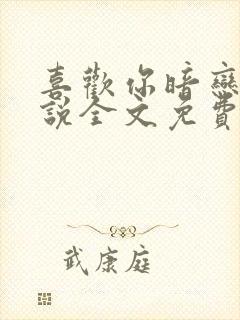 喜歡你暗戀
說全文免費
武康庭